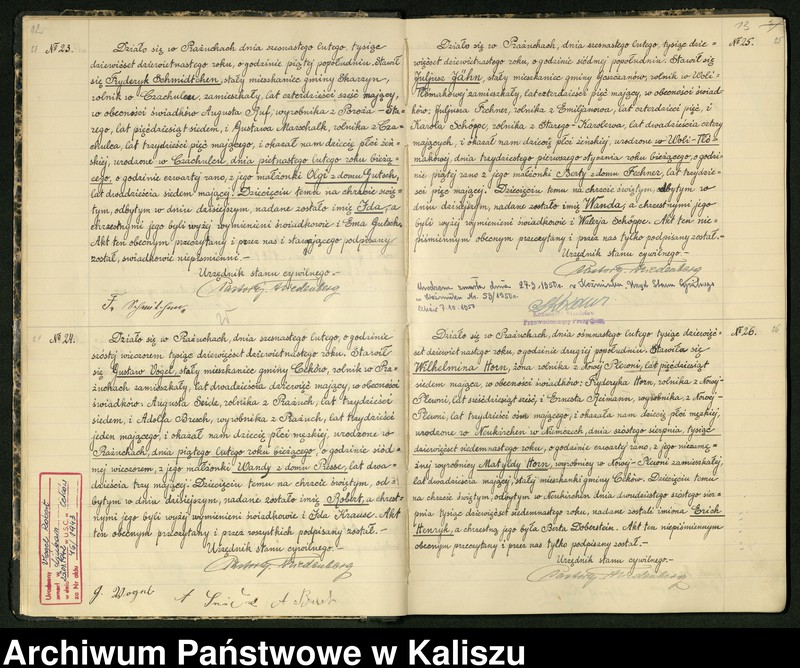 12
№ 23.
Działo się w Prażuchach dnia szesnastego lutego, tysiąc
dziewięćset dziewiętnastego roku, o godzinie piątej popołudniu. Stawił
się Fryderyk Schmidtchen, stały mieszkaniec gminy Skarzyn,
rolnik w Czachulcu, zamieszkały, lat czterdzieści sześć mający,
w obecności świadków Augusta Ruf, wyrobnika z Broża-Sta-
rego, lat pięćdziesiąt siedem, i Gustawa Marschalk, rolnika z Cza-
chulca, lat trzydzieści pięć mającego, i okazał nam dziecię płci żeń-
skiej, urodzone w Czachulcu, dnia piętnastego lutego roku bieżą-
cego, o godzinie czwartej rano, z jego małżonki Olgi z domu Gutsch,
lat dwadzieścia siedem mającej. Dziecięciu temu na chrzcie świę-
tym, odbytym w dniu dzisiejszym, nadane zostało imię Ida, a
chrzestnymi jego byli wyżej wymienieni świadkowie i Ema Gutsch.
Akt ten obecnym przeczytany i przez nas i stawającego podpisany
został, świadkowie niepiśmienni.-
Urzędnik stanu cywilnego.-
Pastor Wiedenberg
F. Schmidtchen
№ 24.
Działo się w Prażuchach, dnia szesnastego lutego, o godzinie
szóstej wieczorem tysiąc dziewięćset dziewiętnastego roku. Stawił
się Gustaw Vogel, stały mieszkaniec gminy Ceków, rolnik w Pra-
żuchach zamieszkały, lat dwadzieścia dziewięć mający, w obecności
świadków: Augusta Seide, rolnika z Prażuch, lat trzydzieści
siedem, i Adolfa Bresch, wyrobnika z Prażuch, lat trzydzieści
jeden mającego, i okazał nam dziecię płci męskiej, urodzone w
Prażuchach, dnia piątego lutego roku bieżącego, o godzinie siód-
mej wieczorem, z jego małżonki Wandy z domu Russe, lat dwa-
dzieścia trzy mającej. Dziecięciu temu na chrzcie świętym, od-
bytym w dniu dzisiejszym, nadane zostało imię Robert, a chrzest-
nymi jego byli wyżej wymienieni świadkowie i Ida Krause. Akt
ten obecnym przeczytany i przez wszystkich podpisany został.-
Urzędnik stanu cywilnego.-
Pastor Wiedenberg
G. Vogel
A
13
№ 25.
Działo się w Prażuchach, dnia szesnastego lutego, tysiąc dzie-
więćset dziewiętnastego roku, o godzinie siódmej popołudniu. Stawił się
Juljusz Jähn, stały mieszkaniec gminy Goszczanów, rolnik w Woli-
Tłomakowej zamieszkały, lat czterdzieści pięć mający, w obecności świad-
ków: Juljusza Fechner, rolnika z Emiljanowa, lat czterdzieści pięć, i
Karola Schöppe, rolnika z Starego-Karolewa, lat dwadzieścia cztery
mających, i okazał nam dziecię płci żeńskiej, urodzone w Woli-Tło-
makowej, dnia trzydziestego pierwszego stycznia roku bieżącego, o godzi-
nie piątej rano z jego małżonki Berty z domu Fechner, lat trzydzie-
ści pięć mającej. Dziecięciu temu na chrzcie świętym, odbytym w
dniu dzisiejszym, nadane zostało imię Wanda, a chrzestnymi jego
byli wyżej wymienieni świadkowie i Walerja Schöppe. Akt ten nie-
piśmiennym obecnym przeczytany i przez nas tylko podpisany został.-
Urzędnik stanu cywilnego.-
Pastor Wiedenberg
zmarła dnia 27.3.1950r. w Koźminku, Urząd Stanu Cywilnego
w Koźminku Nr. 59/1950r.
№ 26.
Działo się w Prażuchach, dnia ośmnastego lutego tysiąc dziewięć-
set dziewiętnastego roku, o godzinie drugiej popołudniu. Stawiła się
Wilhelmina Horn, żona rolnika z Nowej Plewni, lat pięćdziesiąt
siedem mająca, w obecności świadków: Fryderyka Horn, rolnika z Nowej-
Plewni, lat sześćdziesiąt sześć, i Ernesta Heimann, wyrobnika z Nowej-
Plewni, lat trzydzieści ośm mającego, i okazała nam dziecię płci męskiej,
urodzone w Neukirchen w Niemczech, dnia szóstego sierpnia, tysiąc
dziewięćset siedemnastego roku, o godzinie czwartej rano, z jego niezamę-
żnej wyrobnicy Matyldy Horn, wyrobnicy w Nowej-Plewni zamieszkałej,
lat dwadzieścia mającej, stałej mieszkanki gminy Ceków. Dziecięciu temu
na chrzcie świętym, odbytym w Neukirchen dnia dwudziestego szóstego sier-
pnia tysiąc dziewięćset siedemnastego roku, nadane zostały imiona Erich
Henryk, a chrzestną jego była Berta Doberstein. Akt ten niepiśmiennym
obecnym przeczytany i przez nas tylko podpisany został.-
Urzędnik stanu cywilnego.-
Pastor Wiedenberg
Archiwum Państwowe w Kaliszu